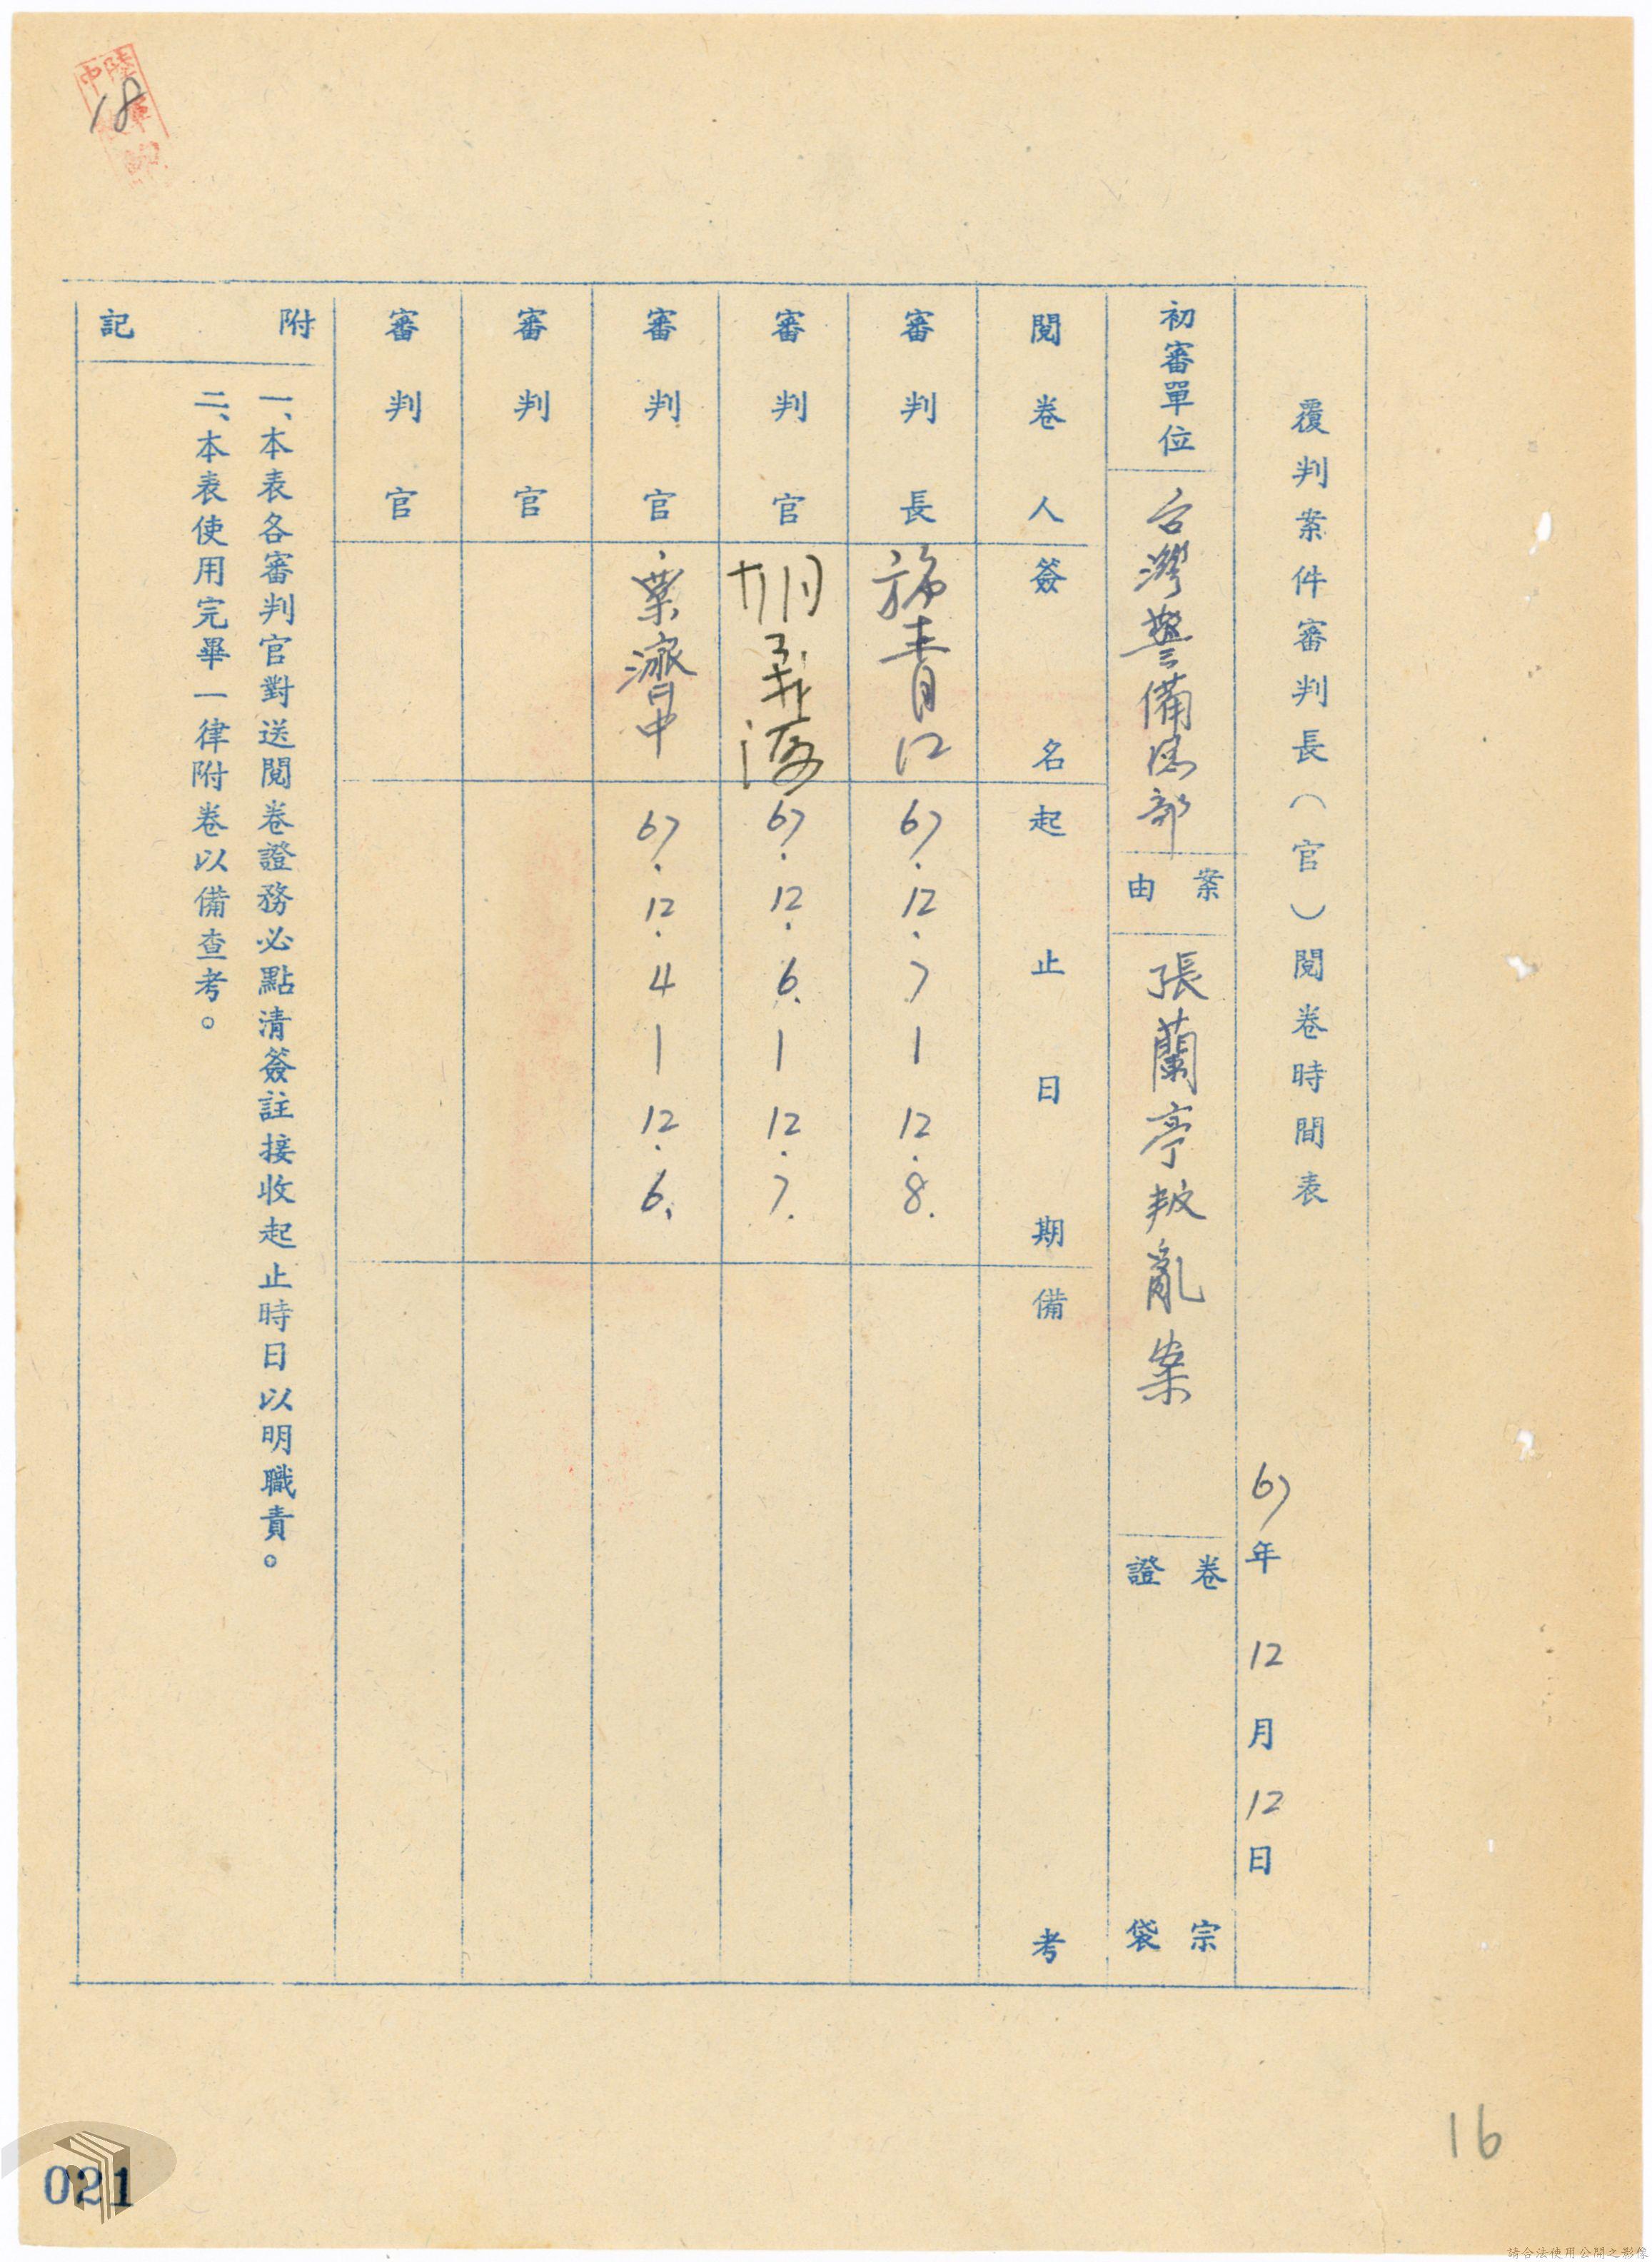 覆判案件審判長（官）閱卷時間表
67年12月12日
初審單位
台灣警備總部
案由
張蘭亭叛亂案
卷宗
證袋
閱卷人
簽名
起止日期
備考
審判長
施青江
67.12.7—12.8.
審判官
67.12.6.—12.7.
審判官
葉濟中
67.12.4—12.6.
審判官
審判官
附記
一、本表各審判官對送閱卷證務必點清簽註接收起止時日以明職責。
二、本表使用完畢一律附卷以備查考。
18
16
021
請合法使用公開之影像